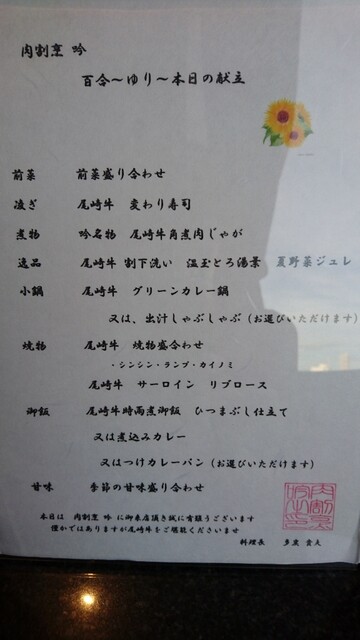 肉割烹 吟
百合～ゆり～本日の献立
前菜 前菜盛り合わせ
凌ぎ 尾崎牛 変わり寿司
煮物 吟名物 尾崎牛角煮肉じゃが
逸品 尾崎牛 割下洗い 温玉とろ湯葉 夏野菜ジュレ
小鍋 尾崎牛 グリーンカレー鍋
又は、出汁しゃぶしゃぶ（お選びいただけます）
焼物 尾崎牛 焼物盛合わせ
・シンシン・ランプ・カイノミ
尾崎牛 サーロイン リブロース
御飯 尾崎牛時雨煮御飯 ひつまぶし仕立て
又は煮込みカレー
又はつけカレーパン（お選びいただけます）
甘味 季節の甘味盛り合わせ
本日は 肉割烹 吟 に御来店頂き誠に有難うございます
僅かではありますが尾崎牛をご堪能くださいませ
料理長